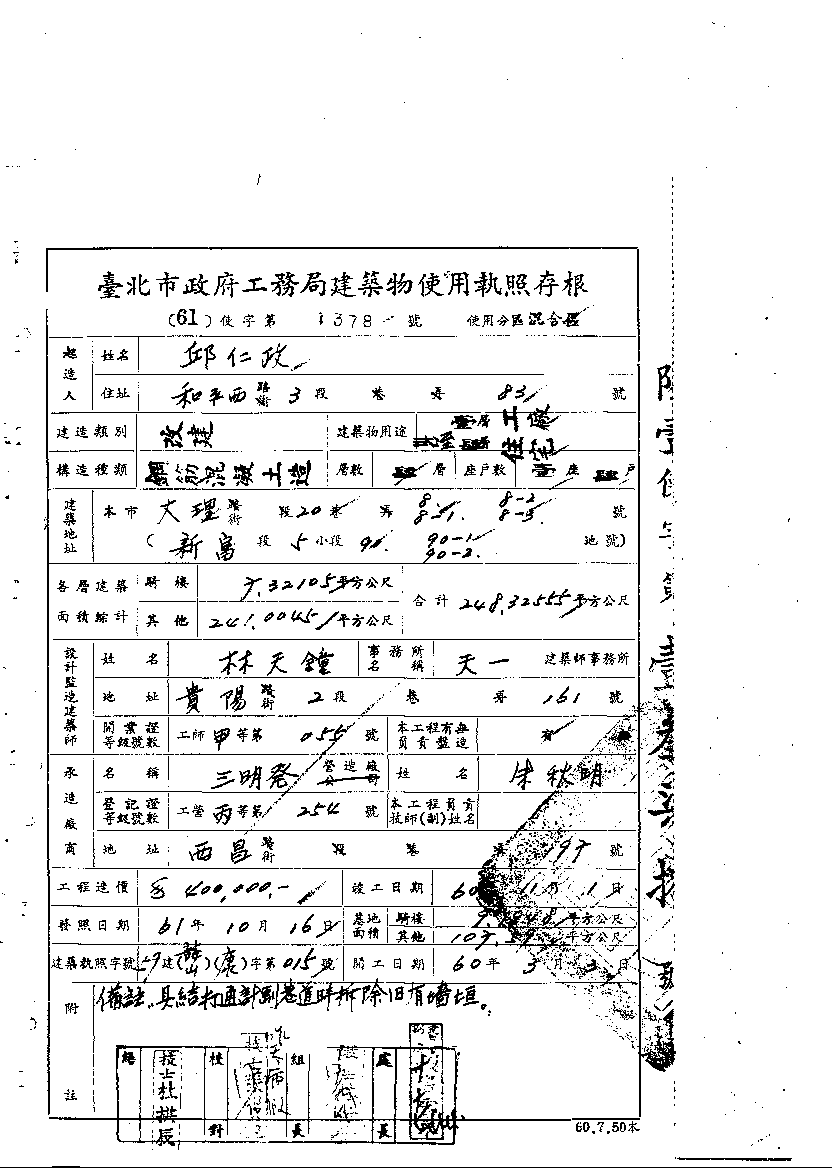 臺北市政府工務局建築物使用執照存根
(61)使字第 1378 號 使用分區 混合區
起造人 姓名 邱仁政
住址 和平西 路街 3 段 巷 弄 83 號
建造類別 改建 建築物用途 層 工廠 住宅
構造種類 鋼筋混凝土造 層數 層 座戶數 座 戶
建築地址 本市 大理 路街 段 20 巷 弄 8 8-1. 8-2 8-3. 號
(新富 段 5 小段 90. 90-1 90-2. 地號)
各層建築面積綜計 騎樓 7.32105 平方公尺
其他 241.00451 平方公尺 合計 248.32555 平方公尺
設計監造建築師 姓名 林天鐘 事務所名稱 天一 建築師事務所
地址 貴陽 路街 2 段 巷 弄 161 號
開業證等級號數 工師 甲 等第 055 號 本工程有無負責監造 有
承造廠商 名稱 三明發 營造廠公司 姓名 朱秋明
登記證等級號數 工營 丙 等第 254 號 本工程負責技師(副)姓名
地址 西昌 路街 段 巷 弄 197 號
工程造價 400,000.- 竣工日期 60 年 11 月 1 日
發照日期 61 年 10 月 16 日 基地面積 騎樓 平方公尺
其他 平方公尺
建築執照字號 59 建( )(康)字第 015 號 開工日期 60 年 3 月 3 日
附註 備註.具結打通計劃巷道時拆除旧有墻垣。
技士杜 校對 組長 處長
60.7.50本